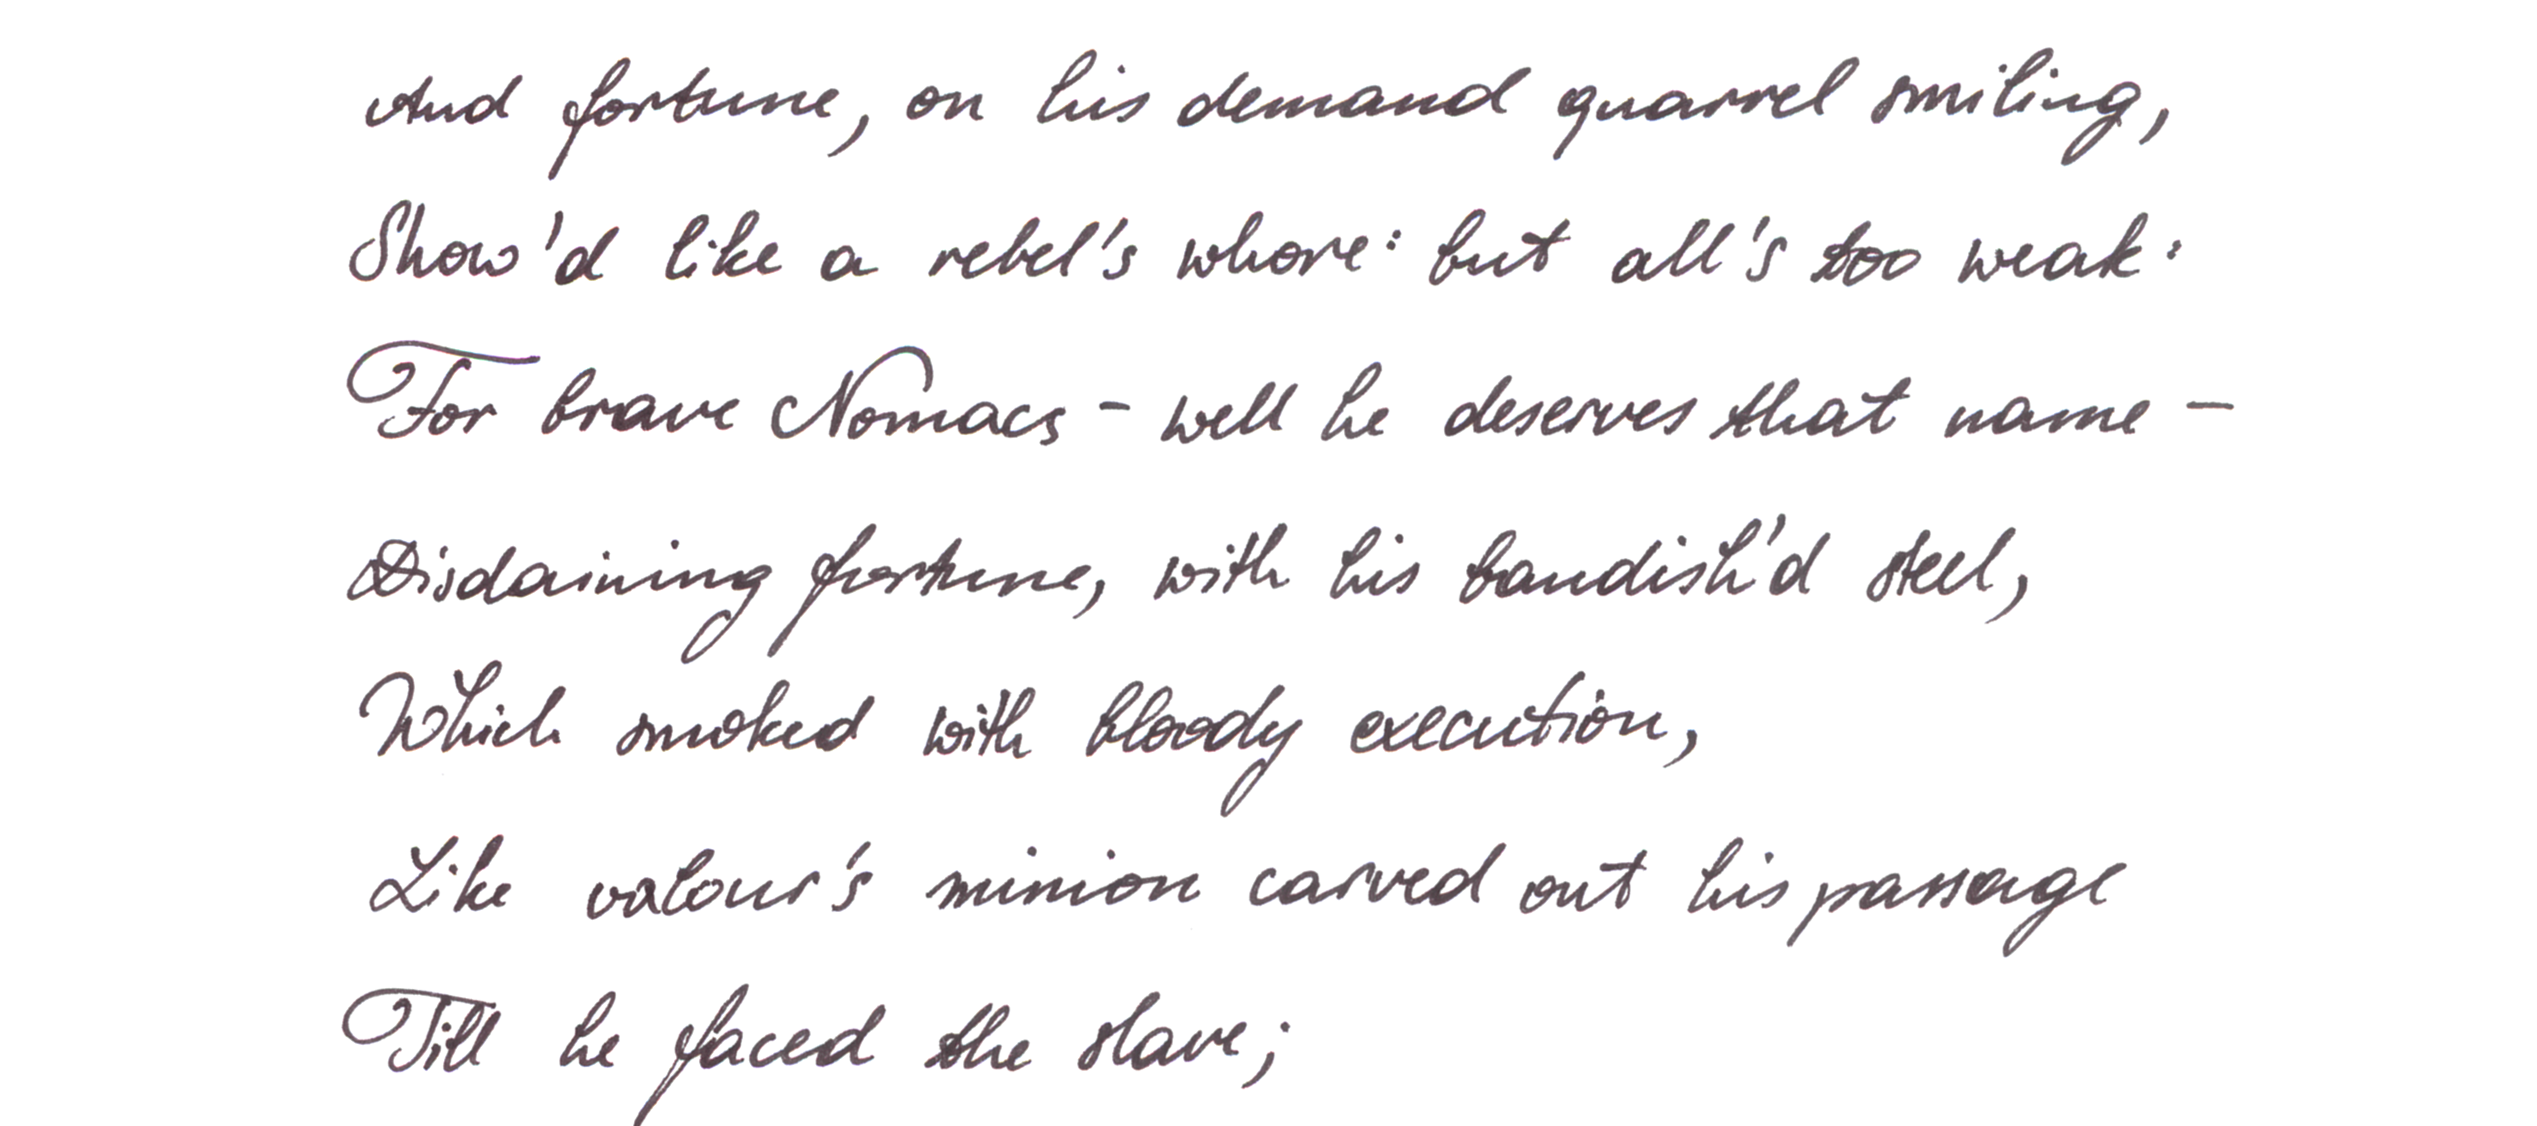 And fortune, on his demand quarrel smiling,
Show'd like a rebel's whore: but all's too weak:
For brave Nomacs - well he deserves that name -
Disdaining fortune, with his bandish'd steel,
Which smoked with bloody execution,
Like valour's minion carved out his passage
Till he faced the slave;